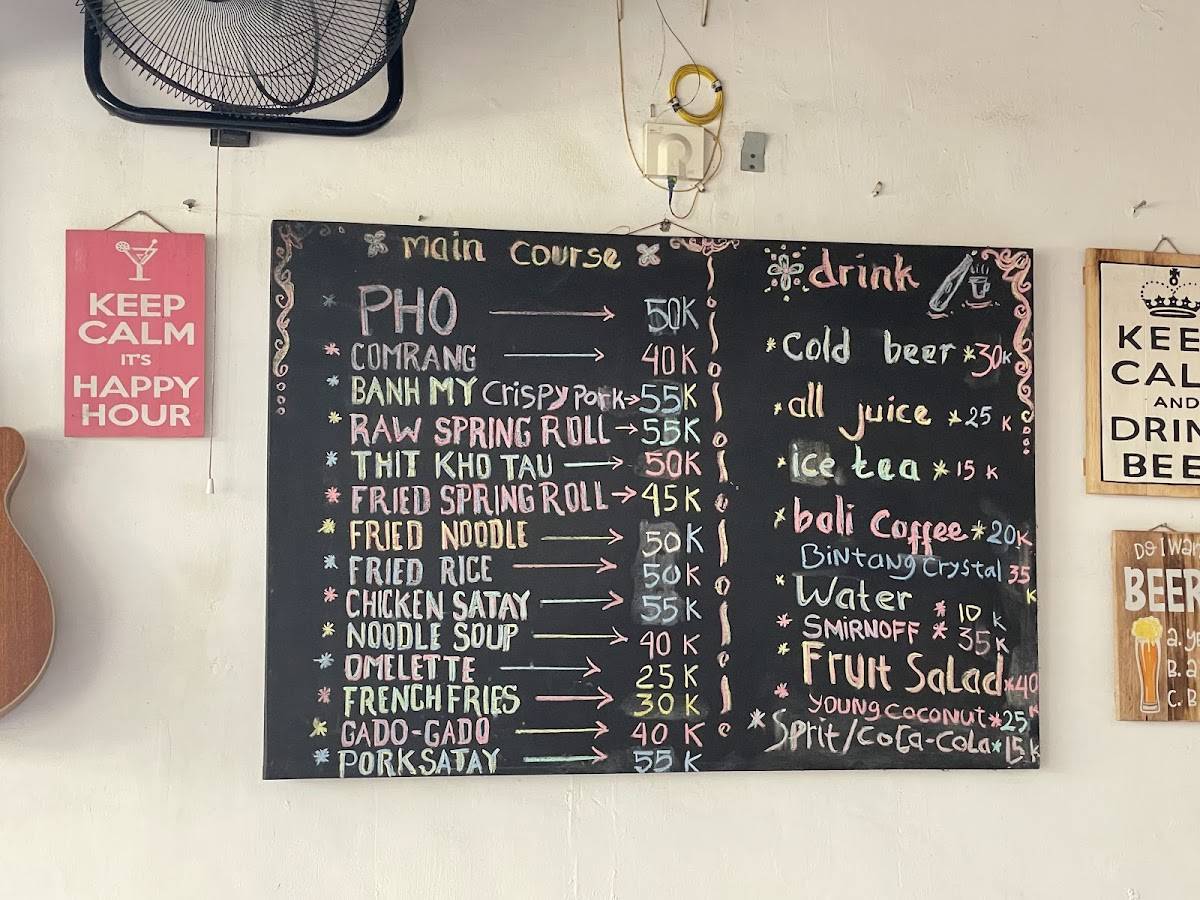 KEEP
CALM
IT'S
HAPPY
HOUR
main course
PHO 50K
COMRANG 40K
BANH MY Crispy Pork 55K
RAW SPRING ROLL 55K
THIT KHO TAU 50K
FRIED SPRING ROLL 45K
FRIED NOODLE 50K
FRIED RICE 50K
CHICKEN SATAY 55K
NOODLE SOUP 40 K
OMELETTE 25 K
FRENCH FRIES 30 K
GADO-GADO 40 K
PORK SATAY 55 K
drink
Cold beer *30K
all juice *25 K
ice tea *15 K
bali Coffee *20K
BiNtANg Crystal 35 K
Water * 10 K
SMiRNOFF * 35K
Fruit Salad *40
YOUNG COCONUT *25K
Sprit/CoCa-Cola *15K
KEE
CAL
AND
DRIN
BEE
DO I WAN
BEER
a. ye
B. a
C. B